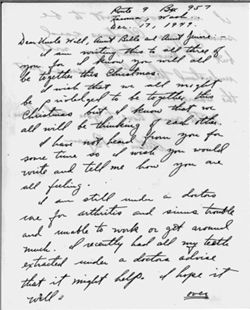 Route 4 Box 957
Wash.
Dec. 17, 1944.
Dear Uncle Will, Aunt Belle and Aunt
I am writing this to all three of
you for I know you will all
be together this Christmas.
I wish that we all might
be privileged to be together this
Christmas but I know that we
all will be thinking of each other.
I have not heard from you for
some time so I wish you would
write and tell me how you are
all feeling.
I am still under a doctors
care for arthritis and sinus trouble
and unable to work or get around
much. I recently had all my teeth
extracted under a doctors advise
that it might help. I hope it
will.
over